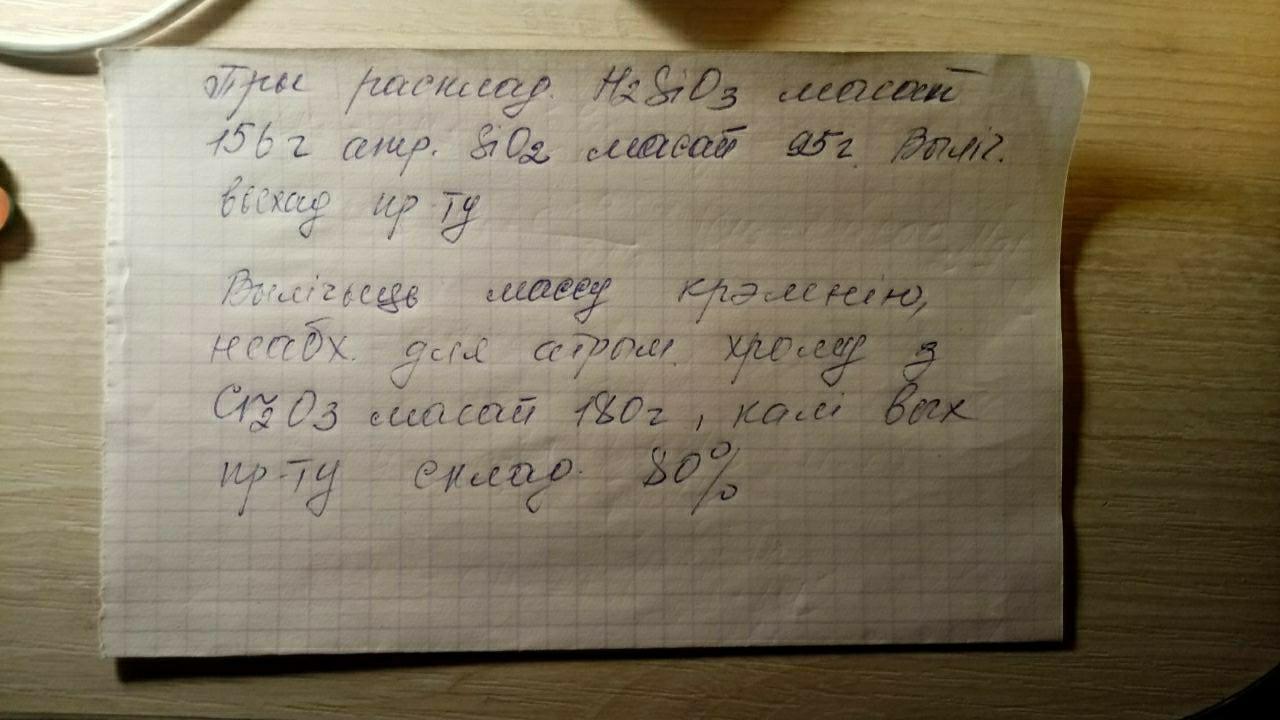 Пры расклад. H2SiO3 масай
156г атр. SiO2 масай 95г. Выліч.
выхад пр-ту
Вылічыць массу крэмнію,
неабх. для атрым. хрому з
Cr2O3 масай 180г, калі вых
пр-ту склад. 80%